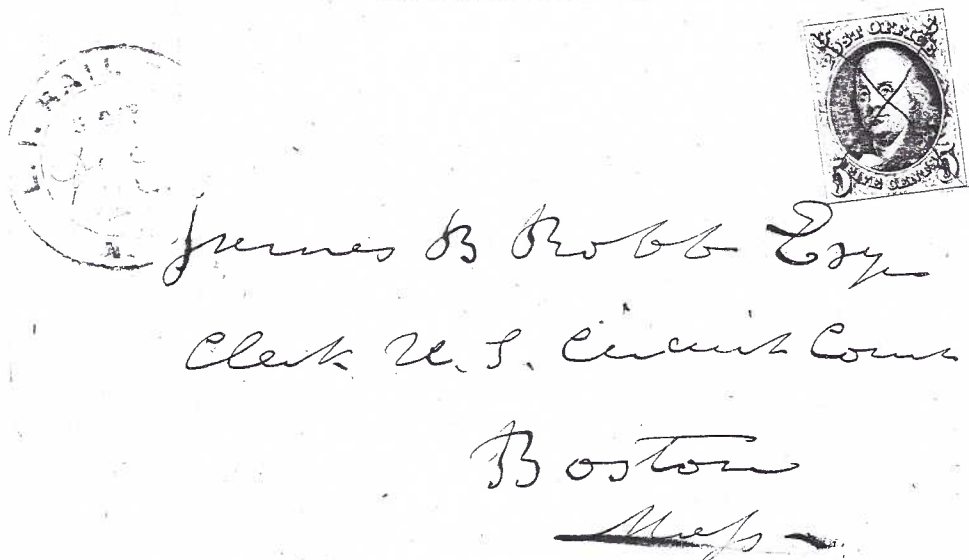 L. I. RAIL
POST OFFICE
5 FIVE CENTS 5
James B Robb Esqr
Clerk U. S. Circuit Court
Boston
Mass